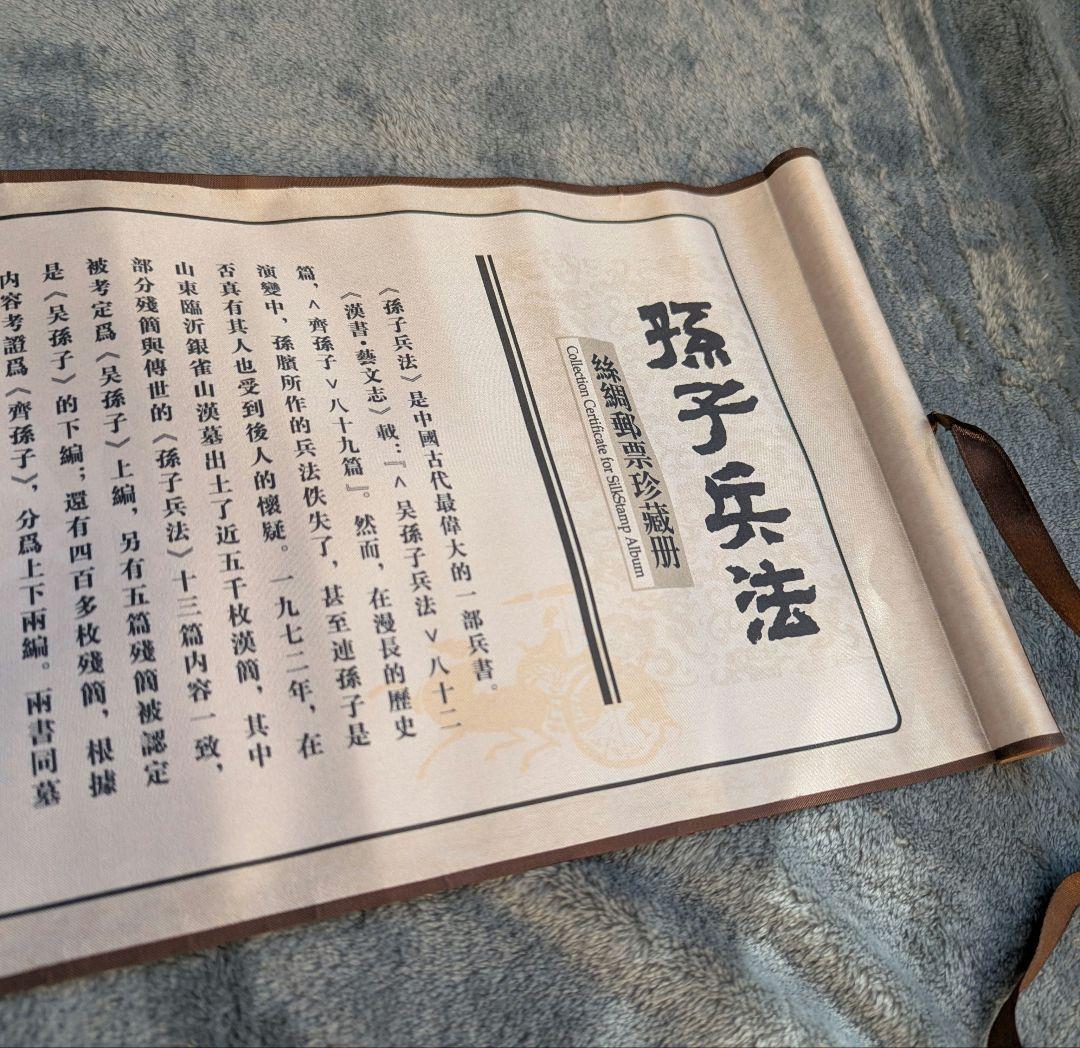 孫子兵法
絲綢郵票珍藏册
Collection Certificate for SilkStamp Album
《孫子兵法》是中國古代最偉大的一部兵書。
《漢書·藝文志》載：『<吴孫子兵法>八十二
篇，<齊孫子>八十九篇』。然而，在漫長的歷史
演變中，孫臏所作的兵法佚失了，甚至連孫子是
否真有其人也受到後人的懷疑。一九七二年，在
山東臨沂銀雀山漢墓出土了近五千枚漢簡，其中
部分殘簡與傳世的《孫子兵法》十三篇内容一致，
被考定爲《吴孫子》上編，另有五篇殘簡被認定
是《吴孫子》的下編；還有四百多枚殘簡，根據
内容考證爲《齊孫子》，分爲上下兩編。兩書同墓